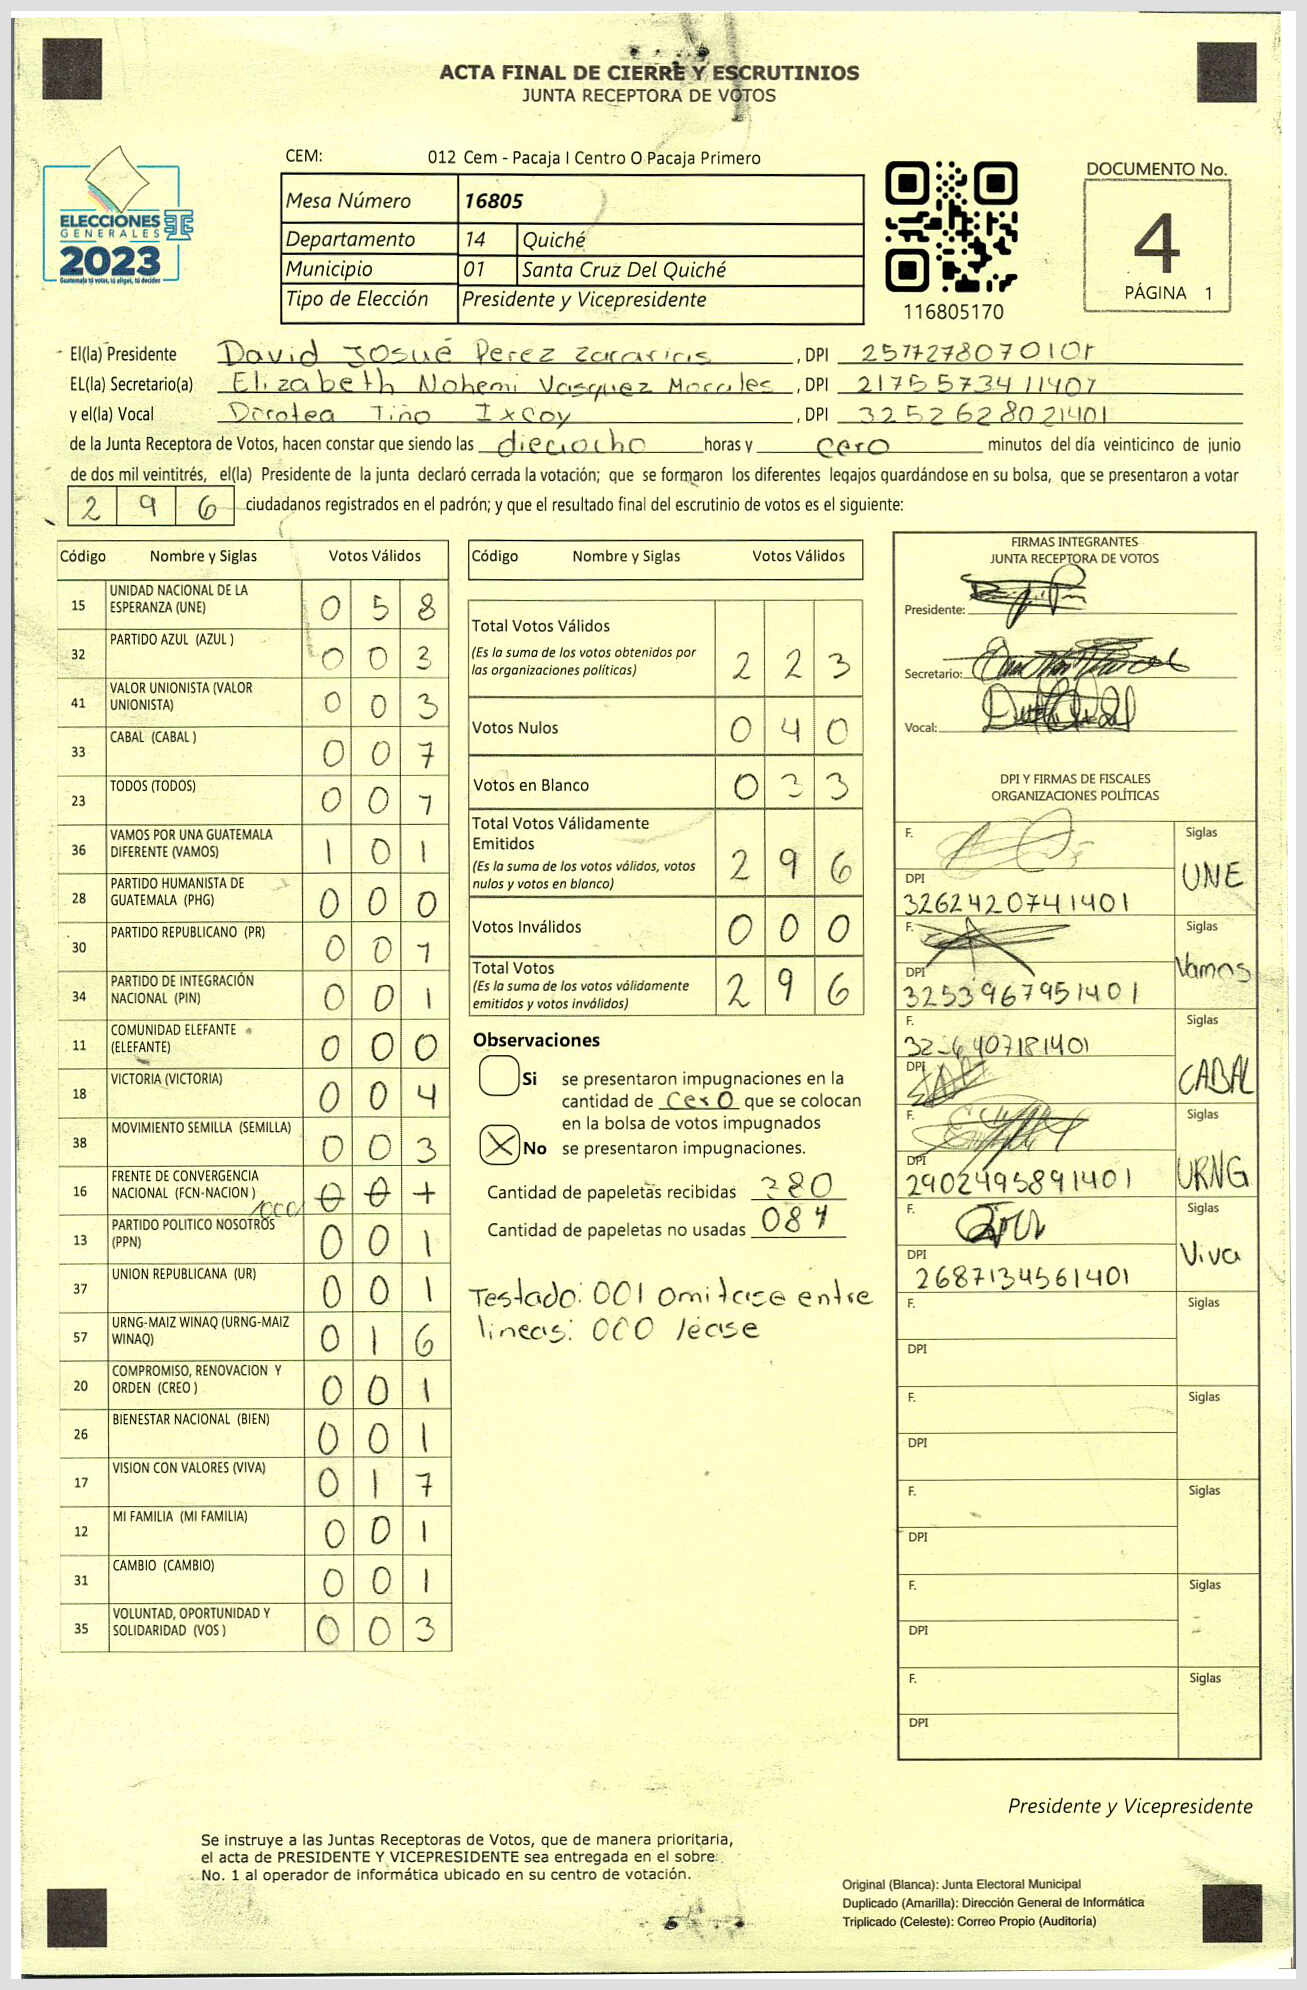 ACTA FINAL DE CIERRE Y ESCRUTINIOS
JUNTA RECEPTORA DE VOTOS
ELECCIONES
GENERALES
2023
Guatemala tú votas, tú eliges, tú decides
CEM: 012 Cem - Pacaja I Centro O Pacaja Primero
Mesa Número 16805
Departamento 14 Quiché
Municipio 01 Santa Cruz Del Quiché
Tipo de Elección Presidente y Vicepresidente
116805170
DOCUMENTO No.
4
PÁGINA 1
El(la) Presidente David Josué Perez Zacarias, DPI
EL(la) Secretario(a) Elizabeth Nohemi Vasquez Morales, DPI 2175573411407
y el(la) Vocal Dorotea Tiño Ixcoy, DPI 3252628021401
de la Junta Receptora de Votos, hacen constar que siendo las dieciocho horas y cero minutos del día veinticinco de junio
de dos mil veintitrés, el(la) Presidente de la junta declaró cerrada la votación; que se formaron los diferentes legajos guardándose en su bolsa, que se presentaron a votar
296 ciudadanos registrados en el padrón; y que el resultado final del escrutinio de votos es el siguiente:
Código Nombre y Siglas Votos Válidos
15 UNIDAD NACIONAL DE LA ESPERANZA (UNE) 0 5 8
32 PARTIDO AZUL (AZUL ) 0 0 3
41 VALOR UNIONISTA (VALOR UNIONISTA) 0 0 3
33 CABAL (CABAL ) 0 0 7
23 TODOS (TODOS) 0 0 1
36 VAMOS POR UNA GUATEMALA DIFERENTE (VAMOS) 1 0 1
28 PARTIDO HUMANISTA DE GUATEMALA (PHG) 0 0 0
30 PARTIDO REPUBLICANO (PR) 0 0 1
34 PARTIDO DE INTEGRACIÓN NACIONAL (PIN) 0 0 1
11 COMUNIDAD ELEFANTE (ELEFANTE) 0 0 0
18 VICTORIA (VICTORIA) 0 0 4
38 MOVIMIENTO SEMILLA (SEMILLA) 0 0 3
16 FRENTE DE CONVERGENCIA NACIONAL (FCN-NACION ) 0 0 1
000
13 PARTIDO POLITICO NOSOTROS (PPN) 0 0 1
37 UNION REPUBLICANA (UR) 0 0 1
57 URNG-MAIZ WINAQ (URNG-MAIZ WINAQ) 0 1 6
20 COMPROMISO, RENOVACION Y ORDEN (CREO ) 0 0 1
26 BIENESTAR NACIONAL (BIEN) 0 0 1
17 VISION CON VALORES (VIVA) 0 1 7
12 MI FAMILIA (MI FAMILIA) 0 0 1
31 CAMBIO (CAMBIO) 0 0 1
35 VOLUNTAD, OPORTUNIDAD Y SOLIDARIDAD (VOS ) 0 0 3
Código Nombre y Siglas Votos Válidos
Total Votos Válidos 2 2 3
(Es la suma de los votos obtenidos por
las organizaciones políticas)
Votos Nulos 0 4 0
Votos en Blanco 0 3 3
Total Votos Válidamente
Emitidos 2 9 6
(Es la suma de los votos válidos, votos
nulos y votos en blanco)
Votos Inválidos 0 0 0
Total Votos 2 9 6
(Es la suma de los votos válidamente
emitidos y votos inválidos)
Observaciones
Si se presentaron impugnaciones en la
cantidad de cero que se colocan
en la bolsa de votos impugnados
X No se presentaron impugnaciones.
Cantidad de papeletas recibidas 380
Cantidad de papeletas no usadas 084
Testado: 001 omitase entre
lineas: 000 lease
FIRMAS INTEGRANTES
JUNTA RECEPTORA DE VOTOS
Presidente:
Secretario:
Vocal:
DPI Y FIRMAS DE FISCALES
ORGANIZACIONES POLÍTICAS
F. Siglas
UNE
DPI
3262420741401
F. Siglas
Vamos
DPI
3253967951401
F. Siglas
CABAL
DPI
F. Siglas
URNG
DPI
2902495891401
F. Siglas
Viva
DPI
2687134561401
F. Siglas
DPI
F. Siglas
DPI
F. Siglas
DPI
F. Siglas
DPI
F. Siglas
DPI
Presidente y Vicepresidente
Se instruye a las Juntas Receptoras de Votos, que de manera prioritaria,
el acta de PRESIDENTE Y VICEPRESIDENTE sea entregada en el sobre
No. 1 al operador de informática ubicado en su centro de votación.
Original (Blanca): Junta Electoral Municipal
Duplicado (Amarilla): Dirección General de Informática
Triplicado (Celeste): Correo Propio (Auditoria)